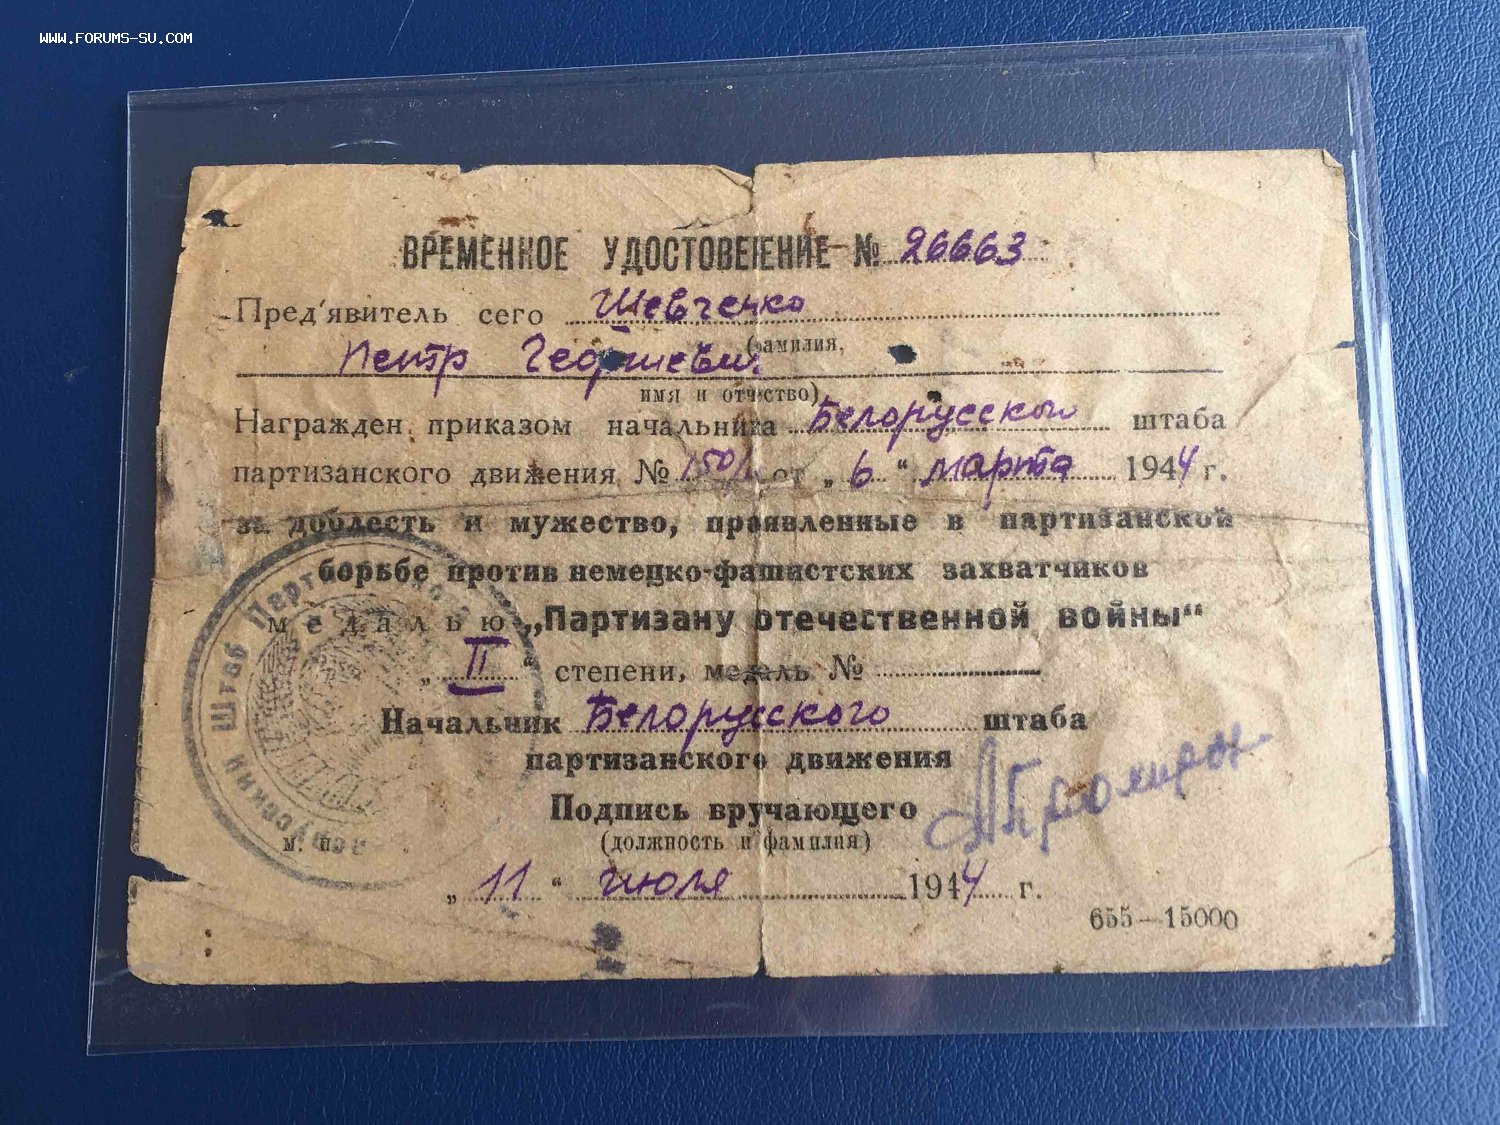 WWW.FORUMS-SU.COM
ВРЕМЕННОЕ УДОСТОВЕРЕНИЕ № 26663
Пред'явитель сего Шевченко
(фамилия,
Петр Георгиевич
имя и отчество)
Награжден приказом начальника Белорусского штаба
партизанского движения № от „6“ марта 1944 г.
за доблесть и мужество, проявленные в партизанской
борьбе против немецко-фашистских захватчиков
медалью „Партизану отечественной войны“
„II“ степени, медаль №
Начальник Белорусского штаба
партизанского движения
Подпись вручающего
(должность и фамилия)
м. п.
„11“ июля 1944 г.
655—15000
Штаб